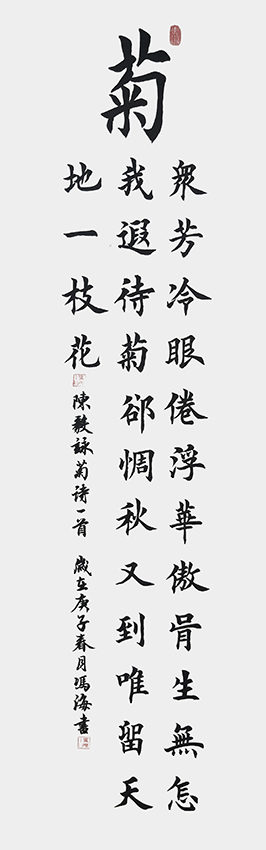 菊
衆芳冷眼倦浮華傲骨生無怎
我遐待菊郤惆秋又到唯留天
地一枝花
陳毅詠菊诗一首 歲在庚子春月馮海書